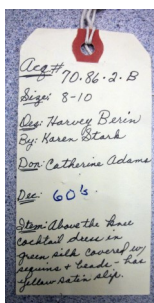 Acq# 70.86.2.B
Size: 8-10
Des: Harvey Berin
By: Karen Stark
Don: Catherine Adams
Dec: 60's
Item: Above the knee
cocktail dress in
green silk covered w/
sequins & beads - has
yellow satin slip.